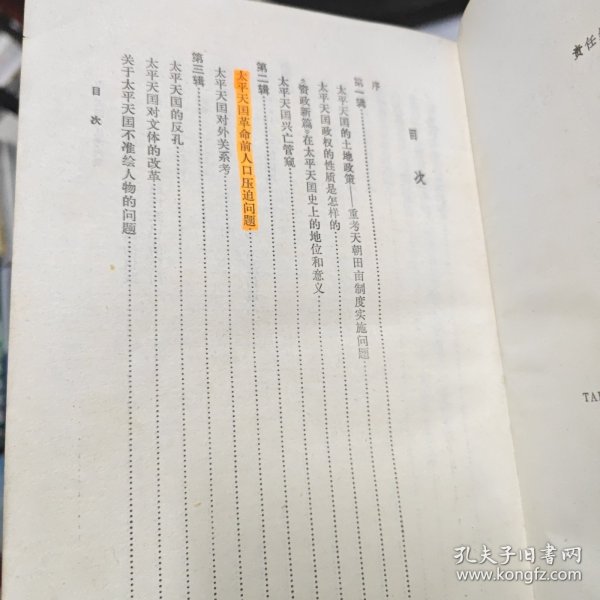 目次
序
第一辑
太平天国的土地政策——重考天朝田亩制度实施问题
太平天国政权的性质是怎样的
《资政新篇》在太平天国史上的地位和意义
太平天国兴亡管窥
第二辑
太平天国革命前人口压迫问题
太平天国对外关系考
第三辑
太平天国的反孔
太平天国对文体的改革
关于太平天国不准绘人物的问题
目次
责任
TAI
孔夫子旧书网
www.kongfz.com